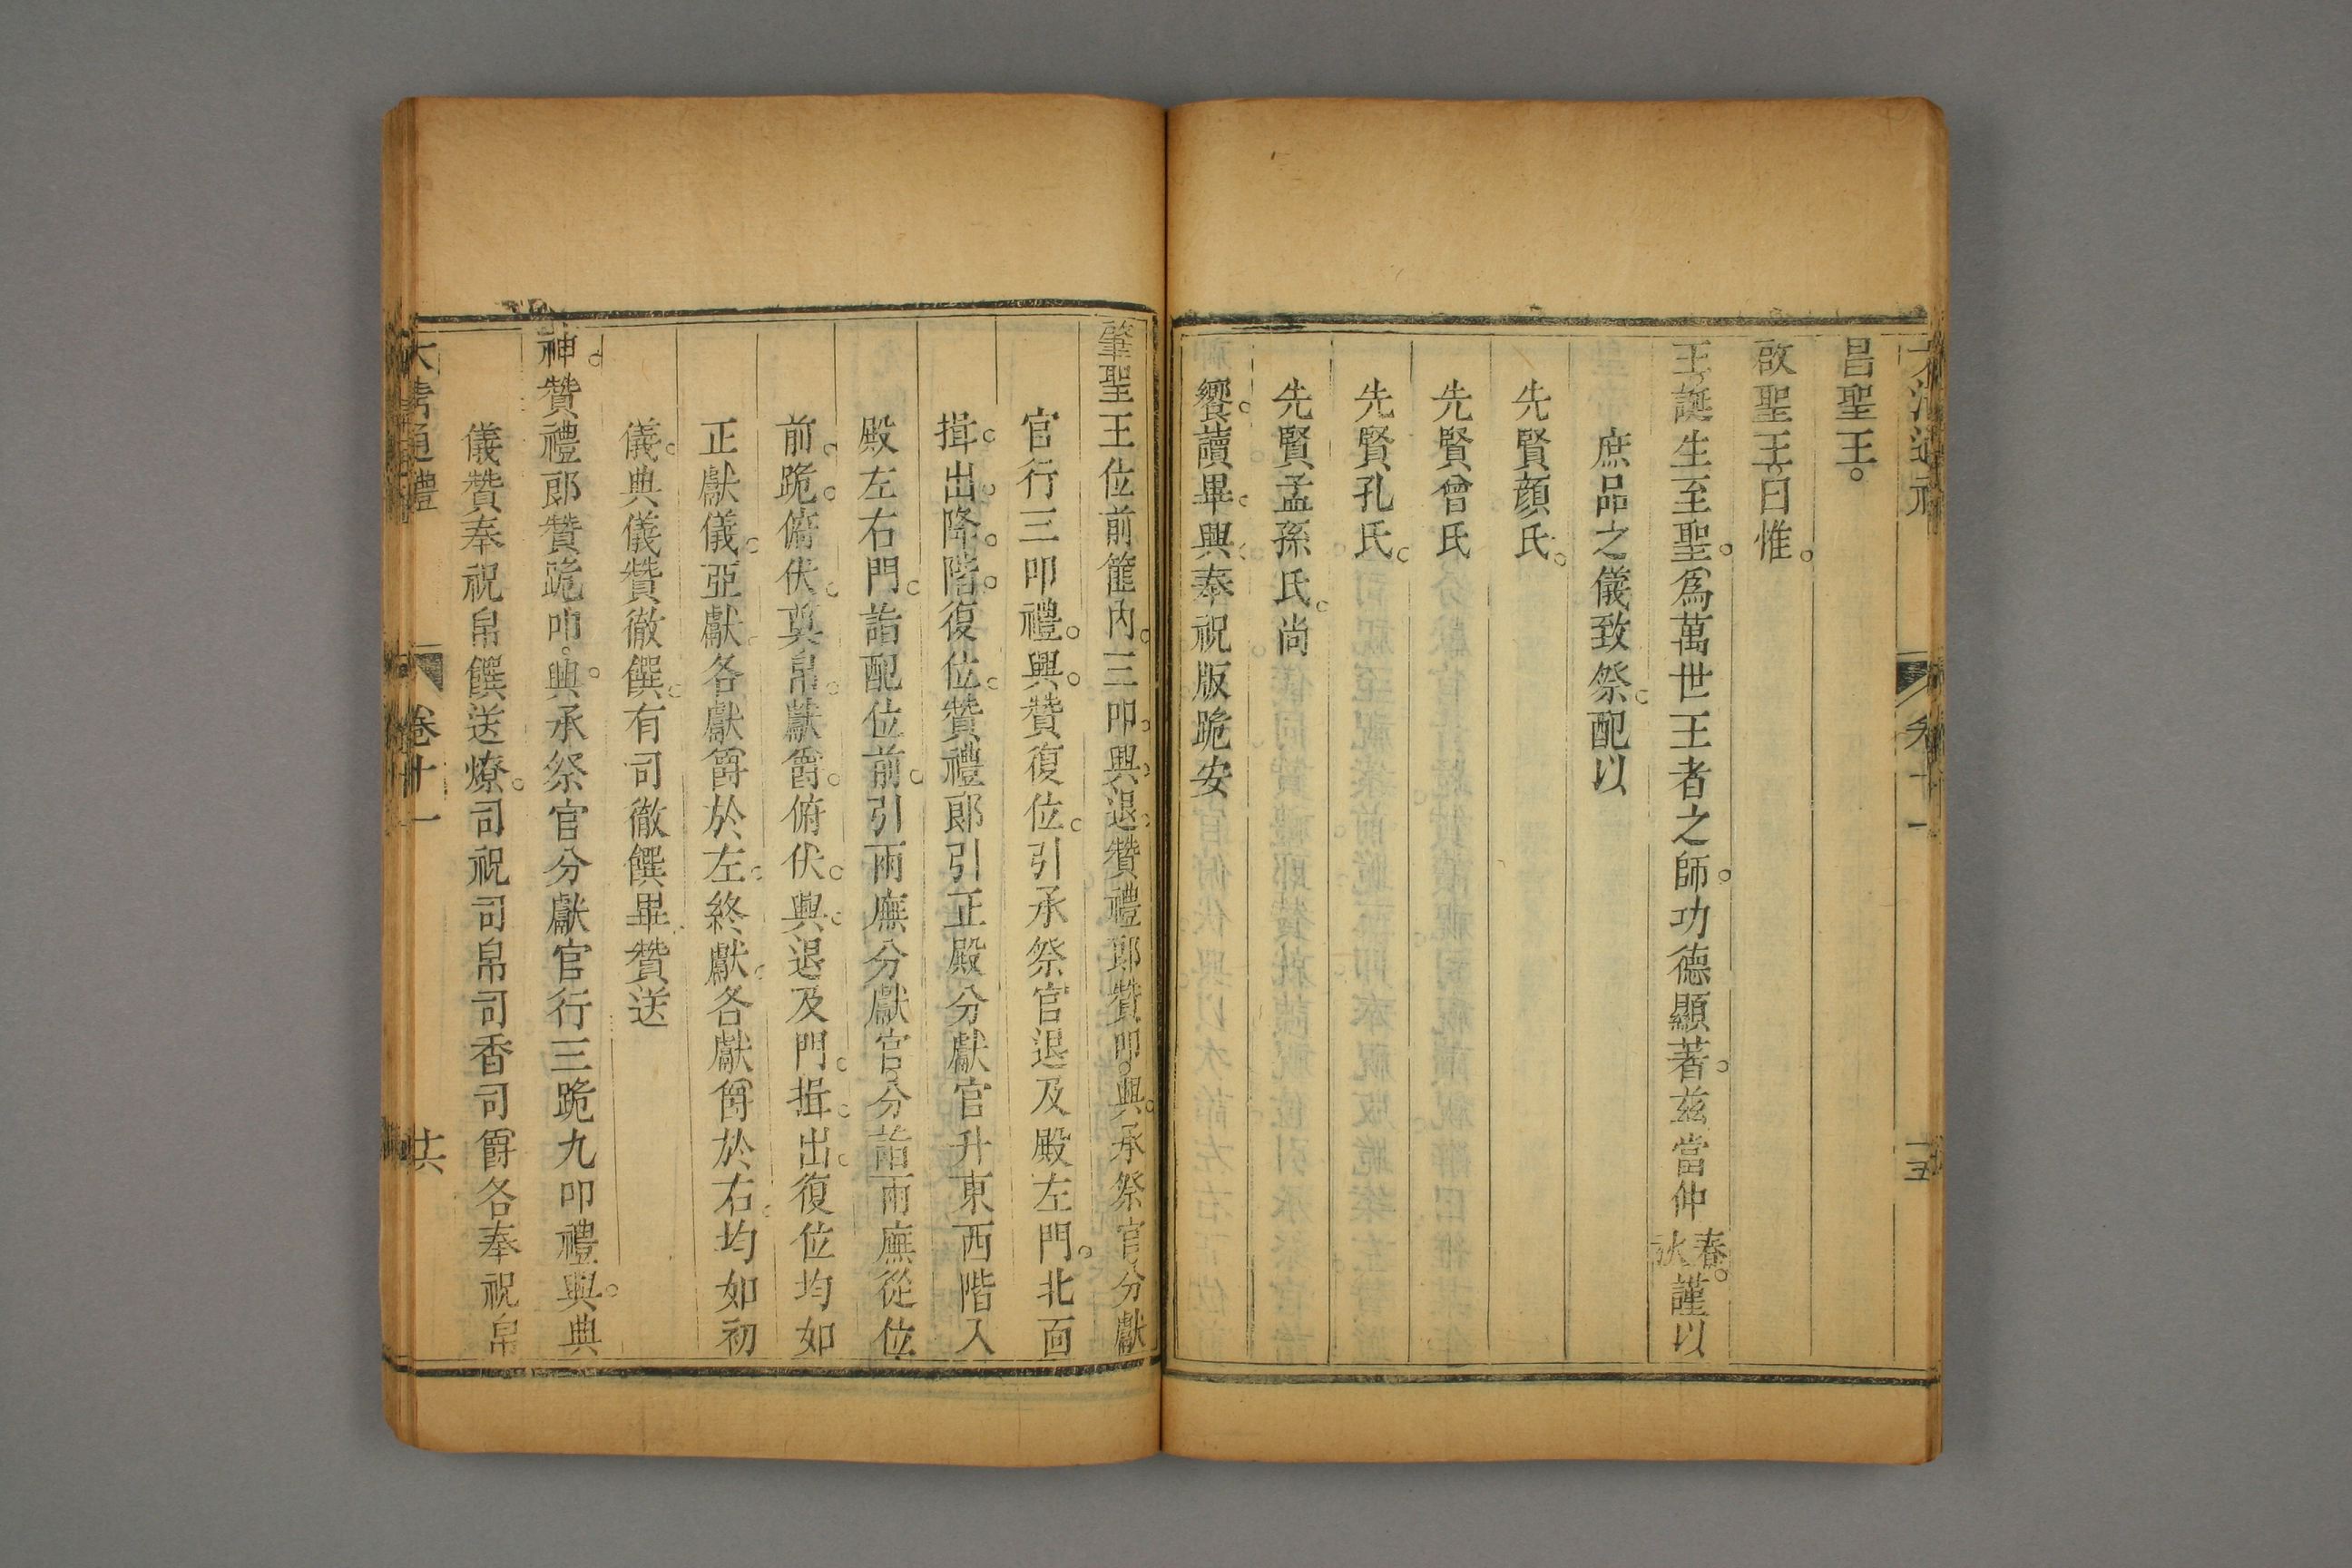 昌聖王。
啟聖王。曰惟。
王。誕生至聖。爲萬世王者之師。功德顯著。兹當仲春秋。謹以
庶品之儀致祭。配以
先賢顔氏。
先賢曾氏
先賢孔氏。
先賢孟孫氏。尚
饗。讀畢。興。奉祝版跪安
肇聖王位前篚内。三叩。興。退。贊禮郎贊叩。興。承祭官分獻
官行三叩禮。興。贊復位。引承祭官退及殿左門。北面
揖。出。降。階。復位。贊禮郎引正殿分獻官升東西階入
殿左右門。詣配位前。引兩廡分獻官。分詣兩廡從位
前。跪。俯伏。奠帛。獻爵。俯伏。興。退及門。揖。出。復位均如
正獻儀。亞獻。各獻爵於左。終獻。各獻爵於右。均如初
儀。典儀贊徹饌。有司徹饌畢。贊送
神。贊禮郎贊跪叩。興。承祭官分獻官行三跪九叩禮。興。典
儀贊奉祝帛饌送燎。司祝司帛司香司爵各奉祝帛
大清通禮 卷十一 十六